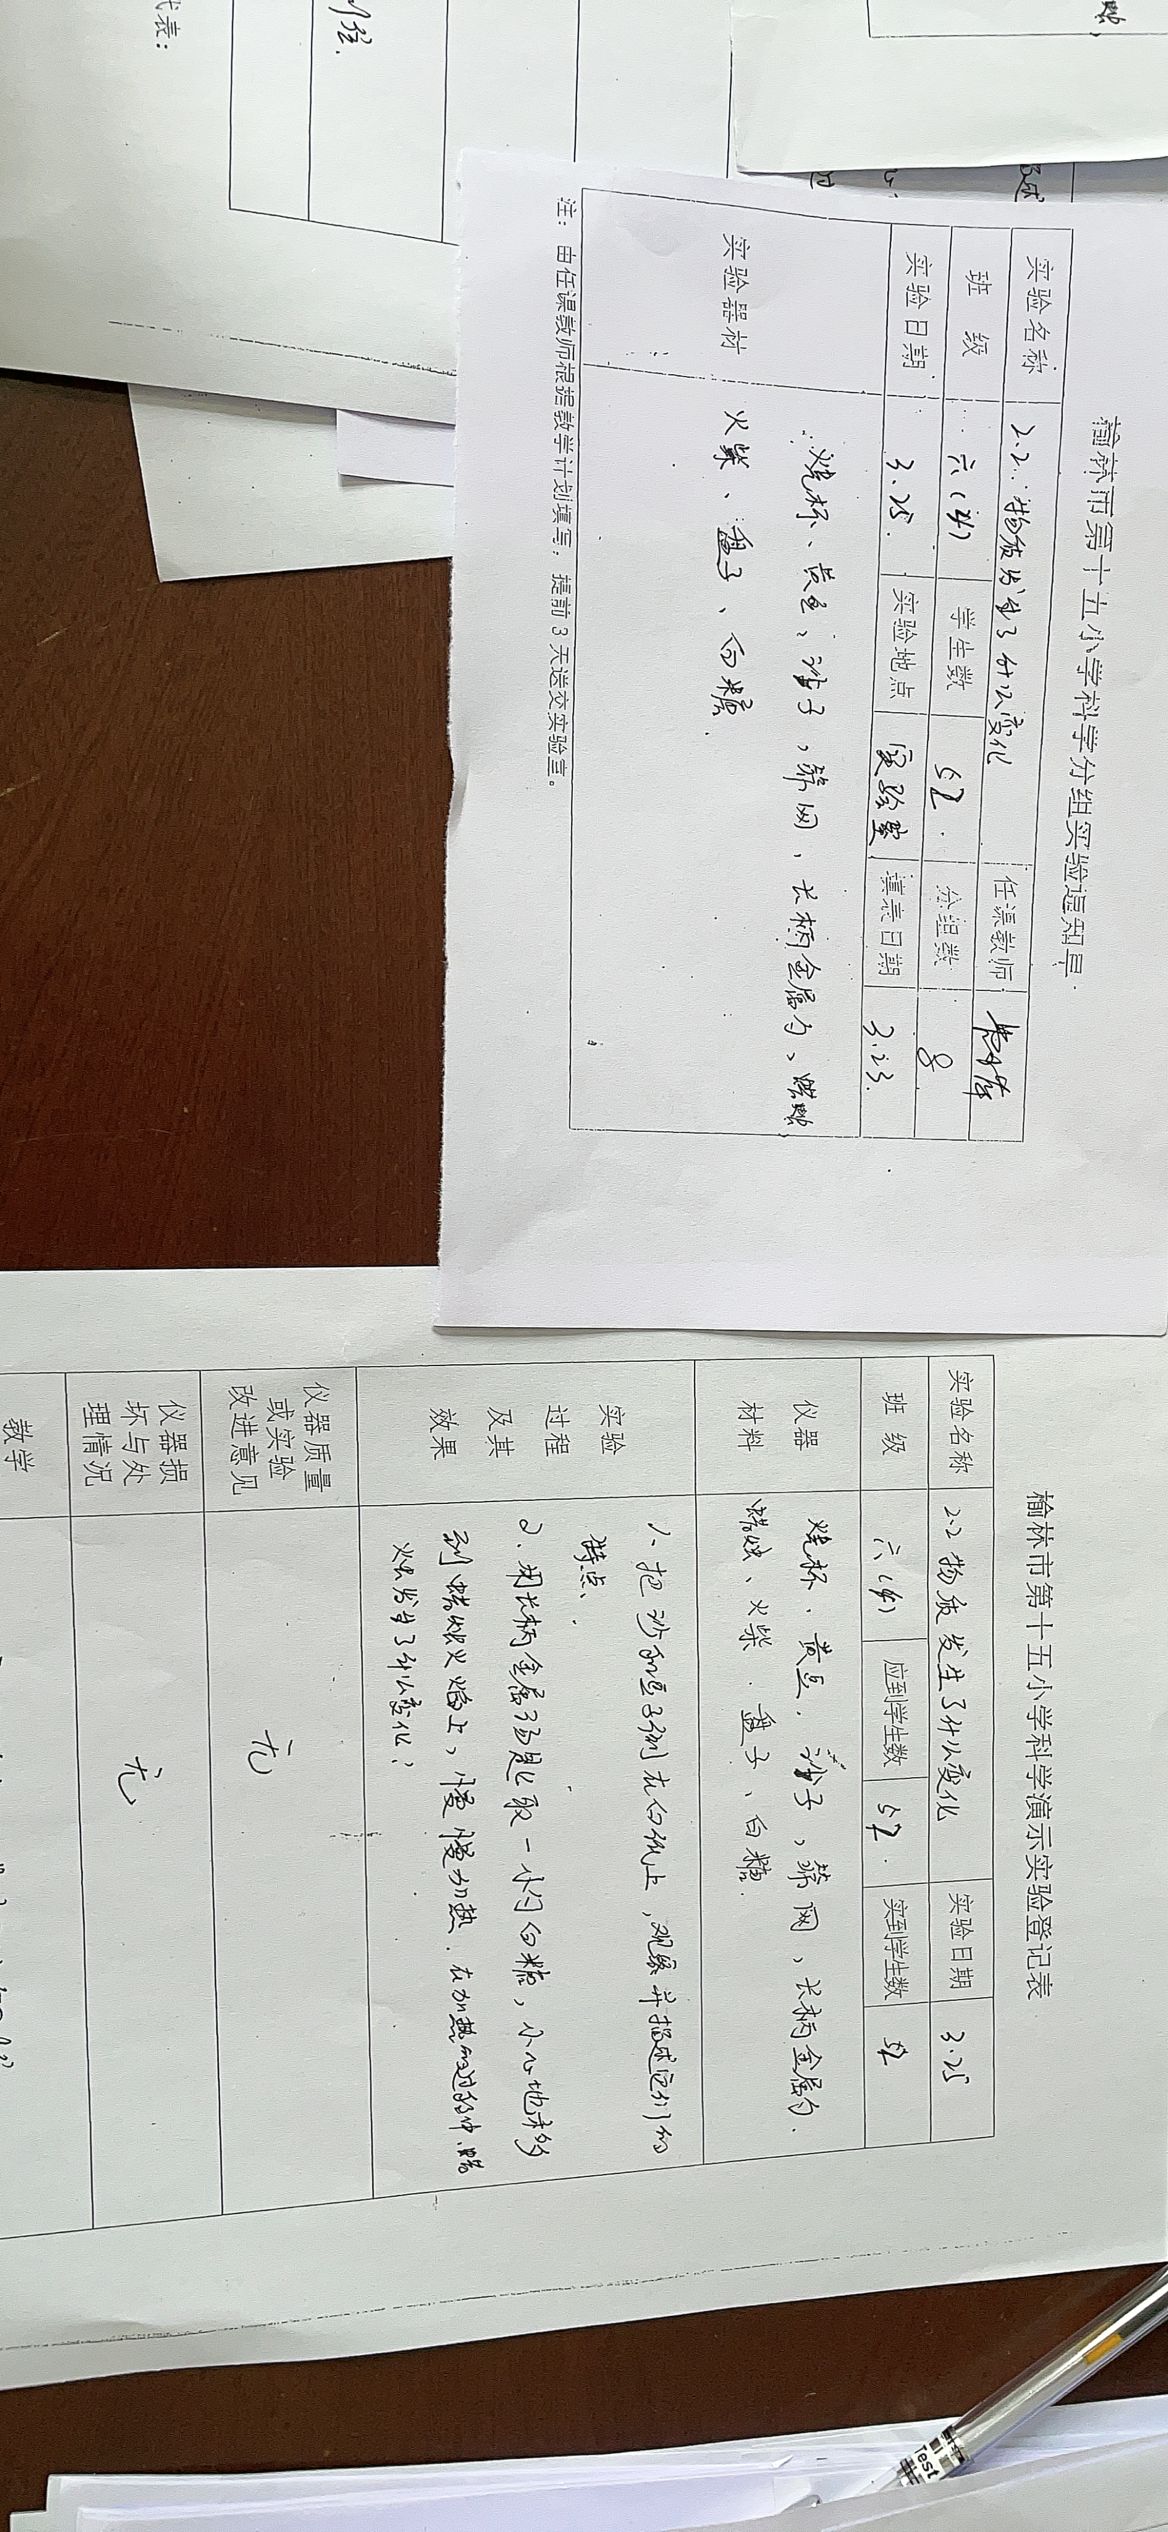 榆林市第十五小学科学分组实验通知单
实验名称 2.2 物质发生了什么变化 任课教师
班 级 六(4) 学生数 52 分组数 8
实验日期 3.25. 实验地点 实验室 填表日期 3.23.
实验器材
烧杯、黄豆、沙子、筛网、长柄金属勺、蜡烛
火柴、盘子、白糖.
注：由任课教师根据教学计划填写，提前3天送交实验室。
榆林市第十五小学科学演示实验登记表
实验名称 2.2 物质发生了什么变化 实验日期 3.25
班 级 六(4) 应到学生数 52. 实到学生数 52
仪器
材料
烧杯、黄豆、沙子、筛网、长柄金属勺.
蜡烛、火柴、盘子、白糖.
实验
过程
及其
效果
1、把沙和豆子倒在白纸上,观察并描述它们的
特点、
2、用长柄金属汤匙取一小勺白糖,小心地移
到蜡烛火焰上,慢慢加热.在加热的过程中,蜡
烛发生了什么变化?
仪器质量
或实验
改进意见
无
仪器损
坏与处
理情况
无
教学
代表：
Test